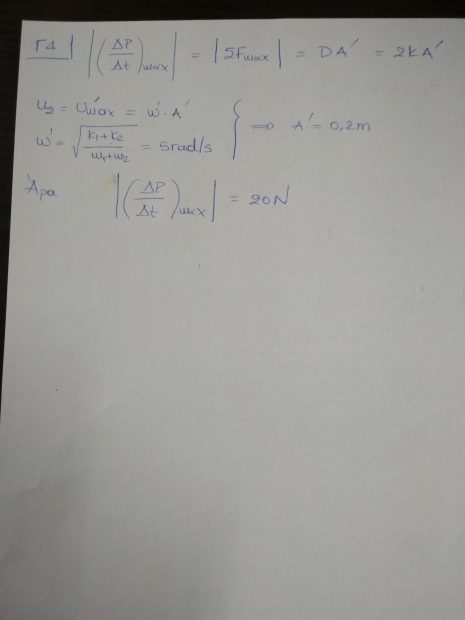 Γ4 | |(ΔP/Δt)max| = |ΣFmax| = DA' = 2KA'
U2 = U'max = ω'·A'
ω' = √(K1+K2/m1+m2) = 5rad/s } ⇒ A' = 0,2m
Άρα |(ΔP/Δt)max| = 20N